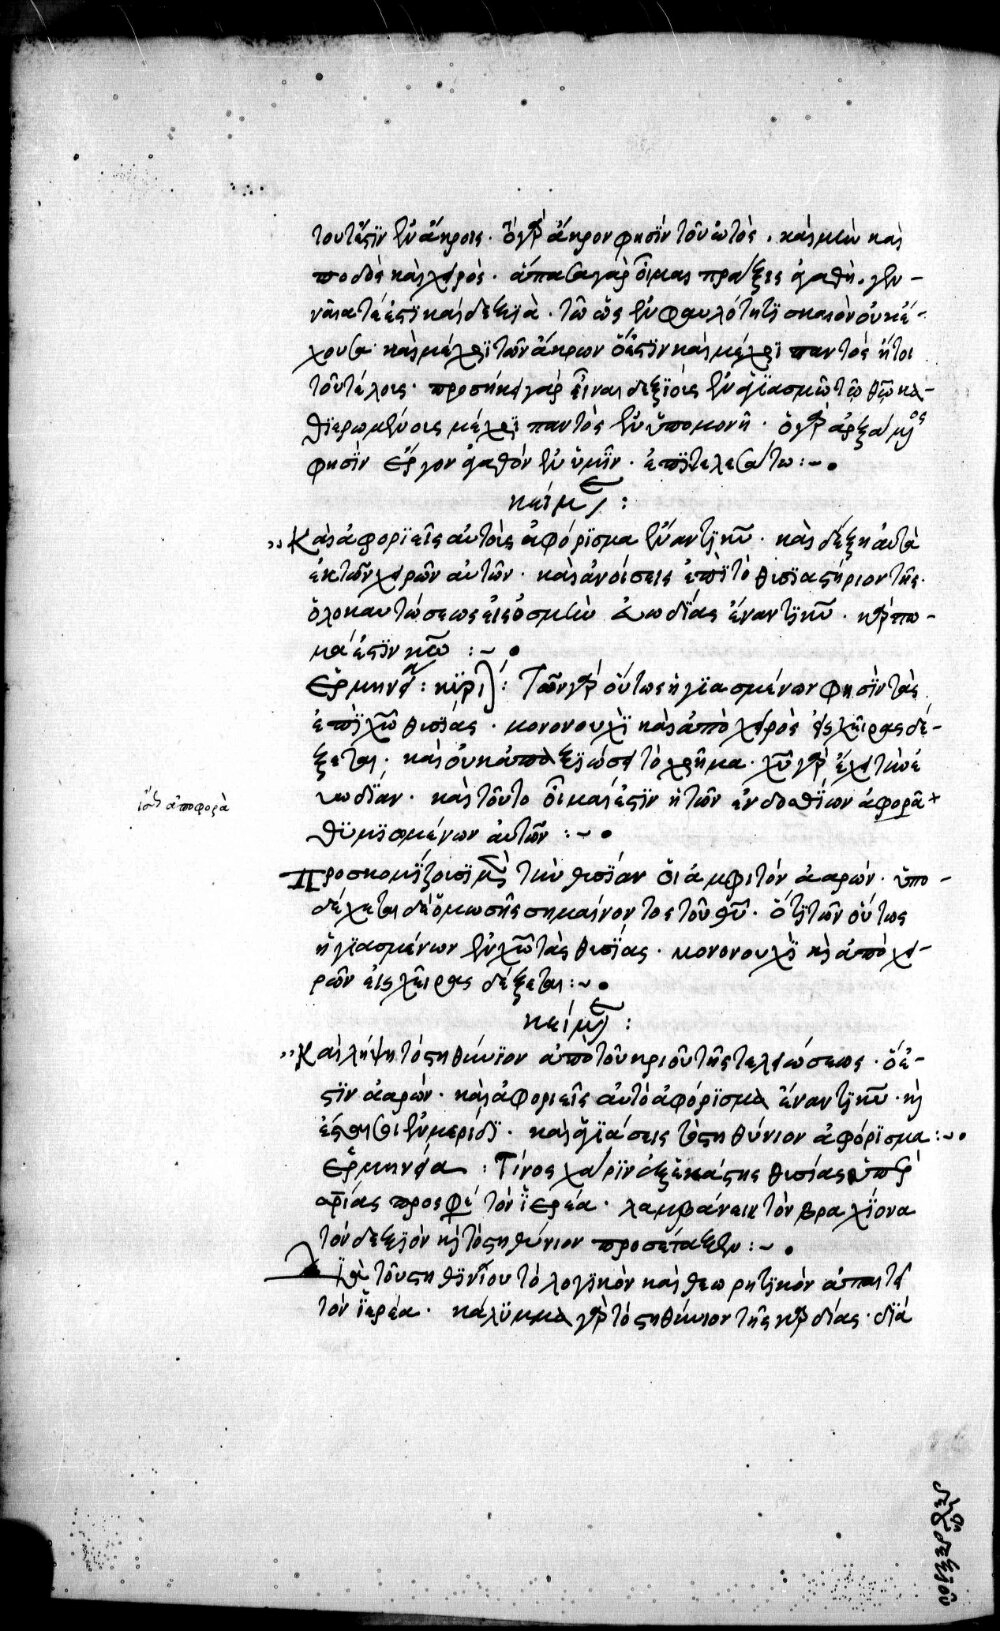 τουτέστιν ἐν ἄκροις · ὁ γὰρ ἄκρον φησὶν τοῦ ὠτὸς · καὶ μὴν καὶ
ποδὸς καὶ χειρός · ἅπασα γὰρ οἶμαι πρᾶξις ἀγαθὴ · γεν-
ναία τέ ἐστι καὶ δεξιὰ · τὸ ὡς ἐν φαυλότητι σκαιὸν οὐκ ἔ-
χουσα · καὶ μέχρι τῶν ἄκρων ὅ ἐστιν καὶ μέχρι παντὸς ἤτοι
τοῦ τέλους · προσήκει γὰρ εἶναι δεξιοῖς ἐν ἁγιασμῷ τῷ θῷ κα-
θιερωμένοις μέχρι παντὸς ἐν ὑπομονῇ · ὁ γὰρ ἀρξάμενος
φησὶν ἔργον ἀγαθὸν ἐν ὑμῖν · ἐπιτελεσάτω :~
κείμενον :
Καὶ ἀφοριεῖς αὐτοὺς ἀφόρισμα ἔναντι κυ · καὶ δέξῃ αὐτὰ
ἐκ τῶν χειρῶν αὐτῶν · καὶ ἀνοίσεις ἐπὶ τὸ θυσιαστήριον τῆς
ὁλοκαυτώσεως εἰς ὀσμὴν εὐωδίας ἔναντι κυ · κάρπω-
μά ἐστιν κῳ :~
Ἑρμηνεία : κυρίλ : Τῶν γὰρ οὕτως ἡγιασμένων φησὶν τὰς
ἐπὶ χῷ θυσίας · μονονουχὶ καὶ ἀπὸ χειρὸς εἰς χεῖρας δέ-
ξεται · καὶ οὐκ ἀπαξιώσει τὸ χρῆμα · χυ γὰρ ἔχει τὴν εὐ-
ωδίαν · καὶ τοῦτο οἶμαι ἐστὶν ἡ τῶν ἐνδοσθίων ἀφορᾶ
θυμιωμένων αὐτῶν :~
ἴσως ἀποφορὰ
Προσκομίζουσι μὲν τὴν θυσίαν οἱ ἀμφὶ τὸν ἀαρών · ὑπο-
δέχεται δὲ ὁ μωσῆς σημαίνοντος τοῦ θυ · ὅτι τῶν οὕτως
ἡγιασμένων ἐν χῷ τὰς θυσίας · μονονουχὶ κὶ ἀπὸ χει-
ρῶν εἰς χεῖρας δέξεται :~
κείμενον :
Καὶ λήψῃ τὸ στηθύνιον ἀπὸ τοῦ κριοῦ τῆς τελειώσεως · ὅ ἐ-
στιν ἀαρών · καὶ ἀφοριεῖς αὐτὸ ἀφόρισμα ἔναντι κυ · κὶ
ἔσται σοι ἐν μερίδι · καὶ ἁγιάσεις τὸ στηθύνιον ἀφόρισμα :~
Ἑρμηνεία : Τίνος χάριν ἐξ ἑκάστης θυσίας ὑπὲρ
ἁμαρτίας προσφέρει τὸν ἱερέα · λαμβάνειν τὸν βραχίονα
τὸν δεξιὸν κὶ τὸ στηθύνιον προσέταξεν :~
Διὰ τοῦ στηθυνίου τὸ λογικὸν καὶ θεωρητικὸν ἀπαιτεῖ
τὸν ἱερέα · κάλυμμα γὰρ τὸ στηθύνιον τῆς καρδίας · διὰ